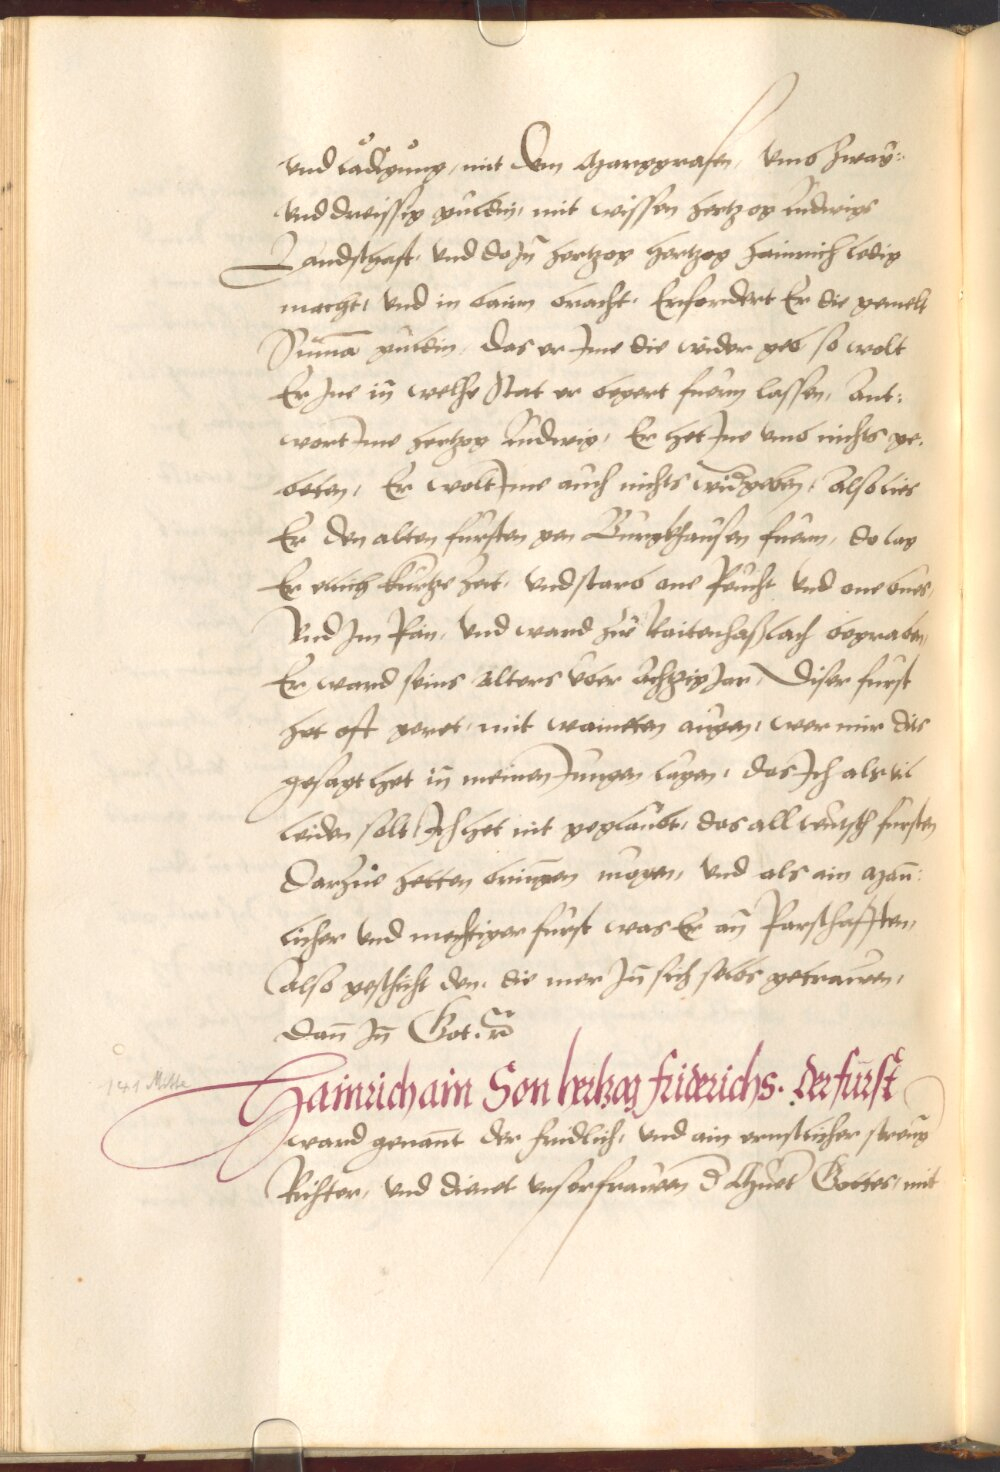 vnd lädigung, mit dem Marggrafen, vmb zway:
vnd dreissig guldin, mit wissen hertzog Ludwigs
Landschaft, vnd do In hertzog hertzog hainrich ledig
macht, vnd in bairn bracht, Erfordert Er die gemelt
Suma guldin, das er Ime die wider geb so wolt
Er Ine in welhe Stat er begert fuern lassen, Ant:
wort Ime hertzog Ludwig, Er het Ine vmb nichts ge:
beten, Er wolt Ime auch nichts widgeben, Also lies
Er den alten fürsten gen Burgkhausen fuern, do lag
Er etlich kurtze zeit, vnd starb one Peücht vnd one bues,
Vnd Im Pan, vnd ward zue Raitenhaßlach begraben,
Er ward seins alters über achtzig Jar, Diser fürst
het oft geret, mit wainten augen, wer mir dis
gesagt het in meinen Jungen tagen, das Ich als vil
leiden solt, Ich het nit geglaubt, das all teutsch fürsten
darzue hetten bringen mögen, vnd als ain Man:
licher vnd mechtiger fürst was Er an Parschafften,
Also geschicht den, die mer In sich selbs getrawen,
dan In Got. &c
141 Mitte
Hainrich ain Son hertzog friderichs. der fürst
ward genant der fridlich, vnd ain ernstlicher streng
Richter, vnd dienet vnser frawen d Muet Gottes, mit